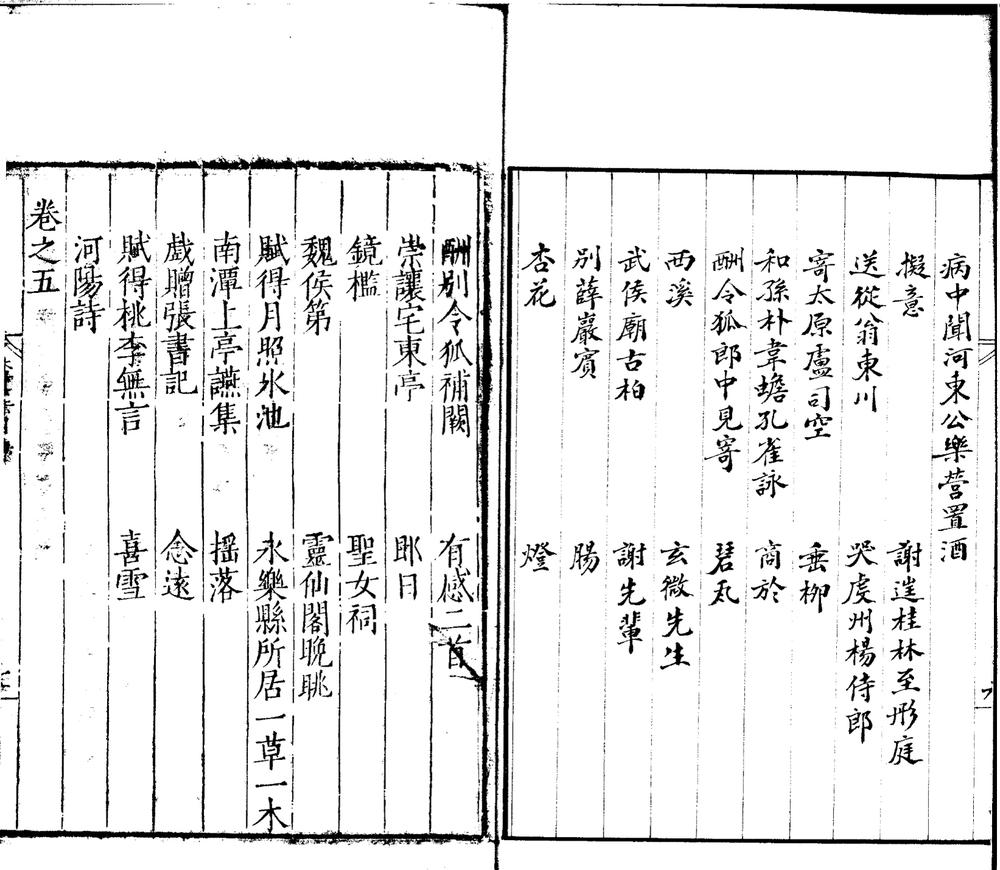 病中聞河東公樂營置酒
擬意 謝逞桂林至彤庭
送從翁東川 哭虔州楊侍郎
寄太原盧司空 垂柳
和孫朴韋蟾孔雀詠 商於
酬令狐郎中見寄 碧瓦
西溪 玄微先生
武侯廟古柏 謝先輩
別薛巖賓 腸
杏花 燈
酬別令狐補闕 有感二首
崇讓宅東亭 即日
鏡檻 聖女祠
魏侯第 靈仙閣晚眺
賦得月照氷池 永樂縣所居一草一木
南潭上亭讌集 搖落
戲贈張書記 念遠
賦得桃李無言 喜雪
河陽詩
卷之五